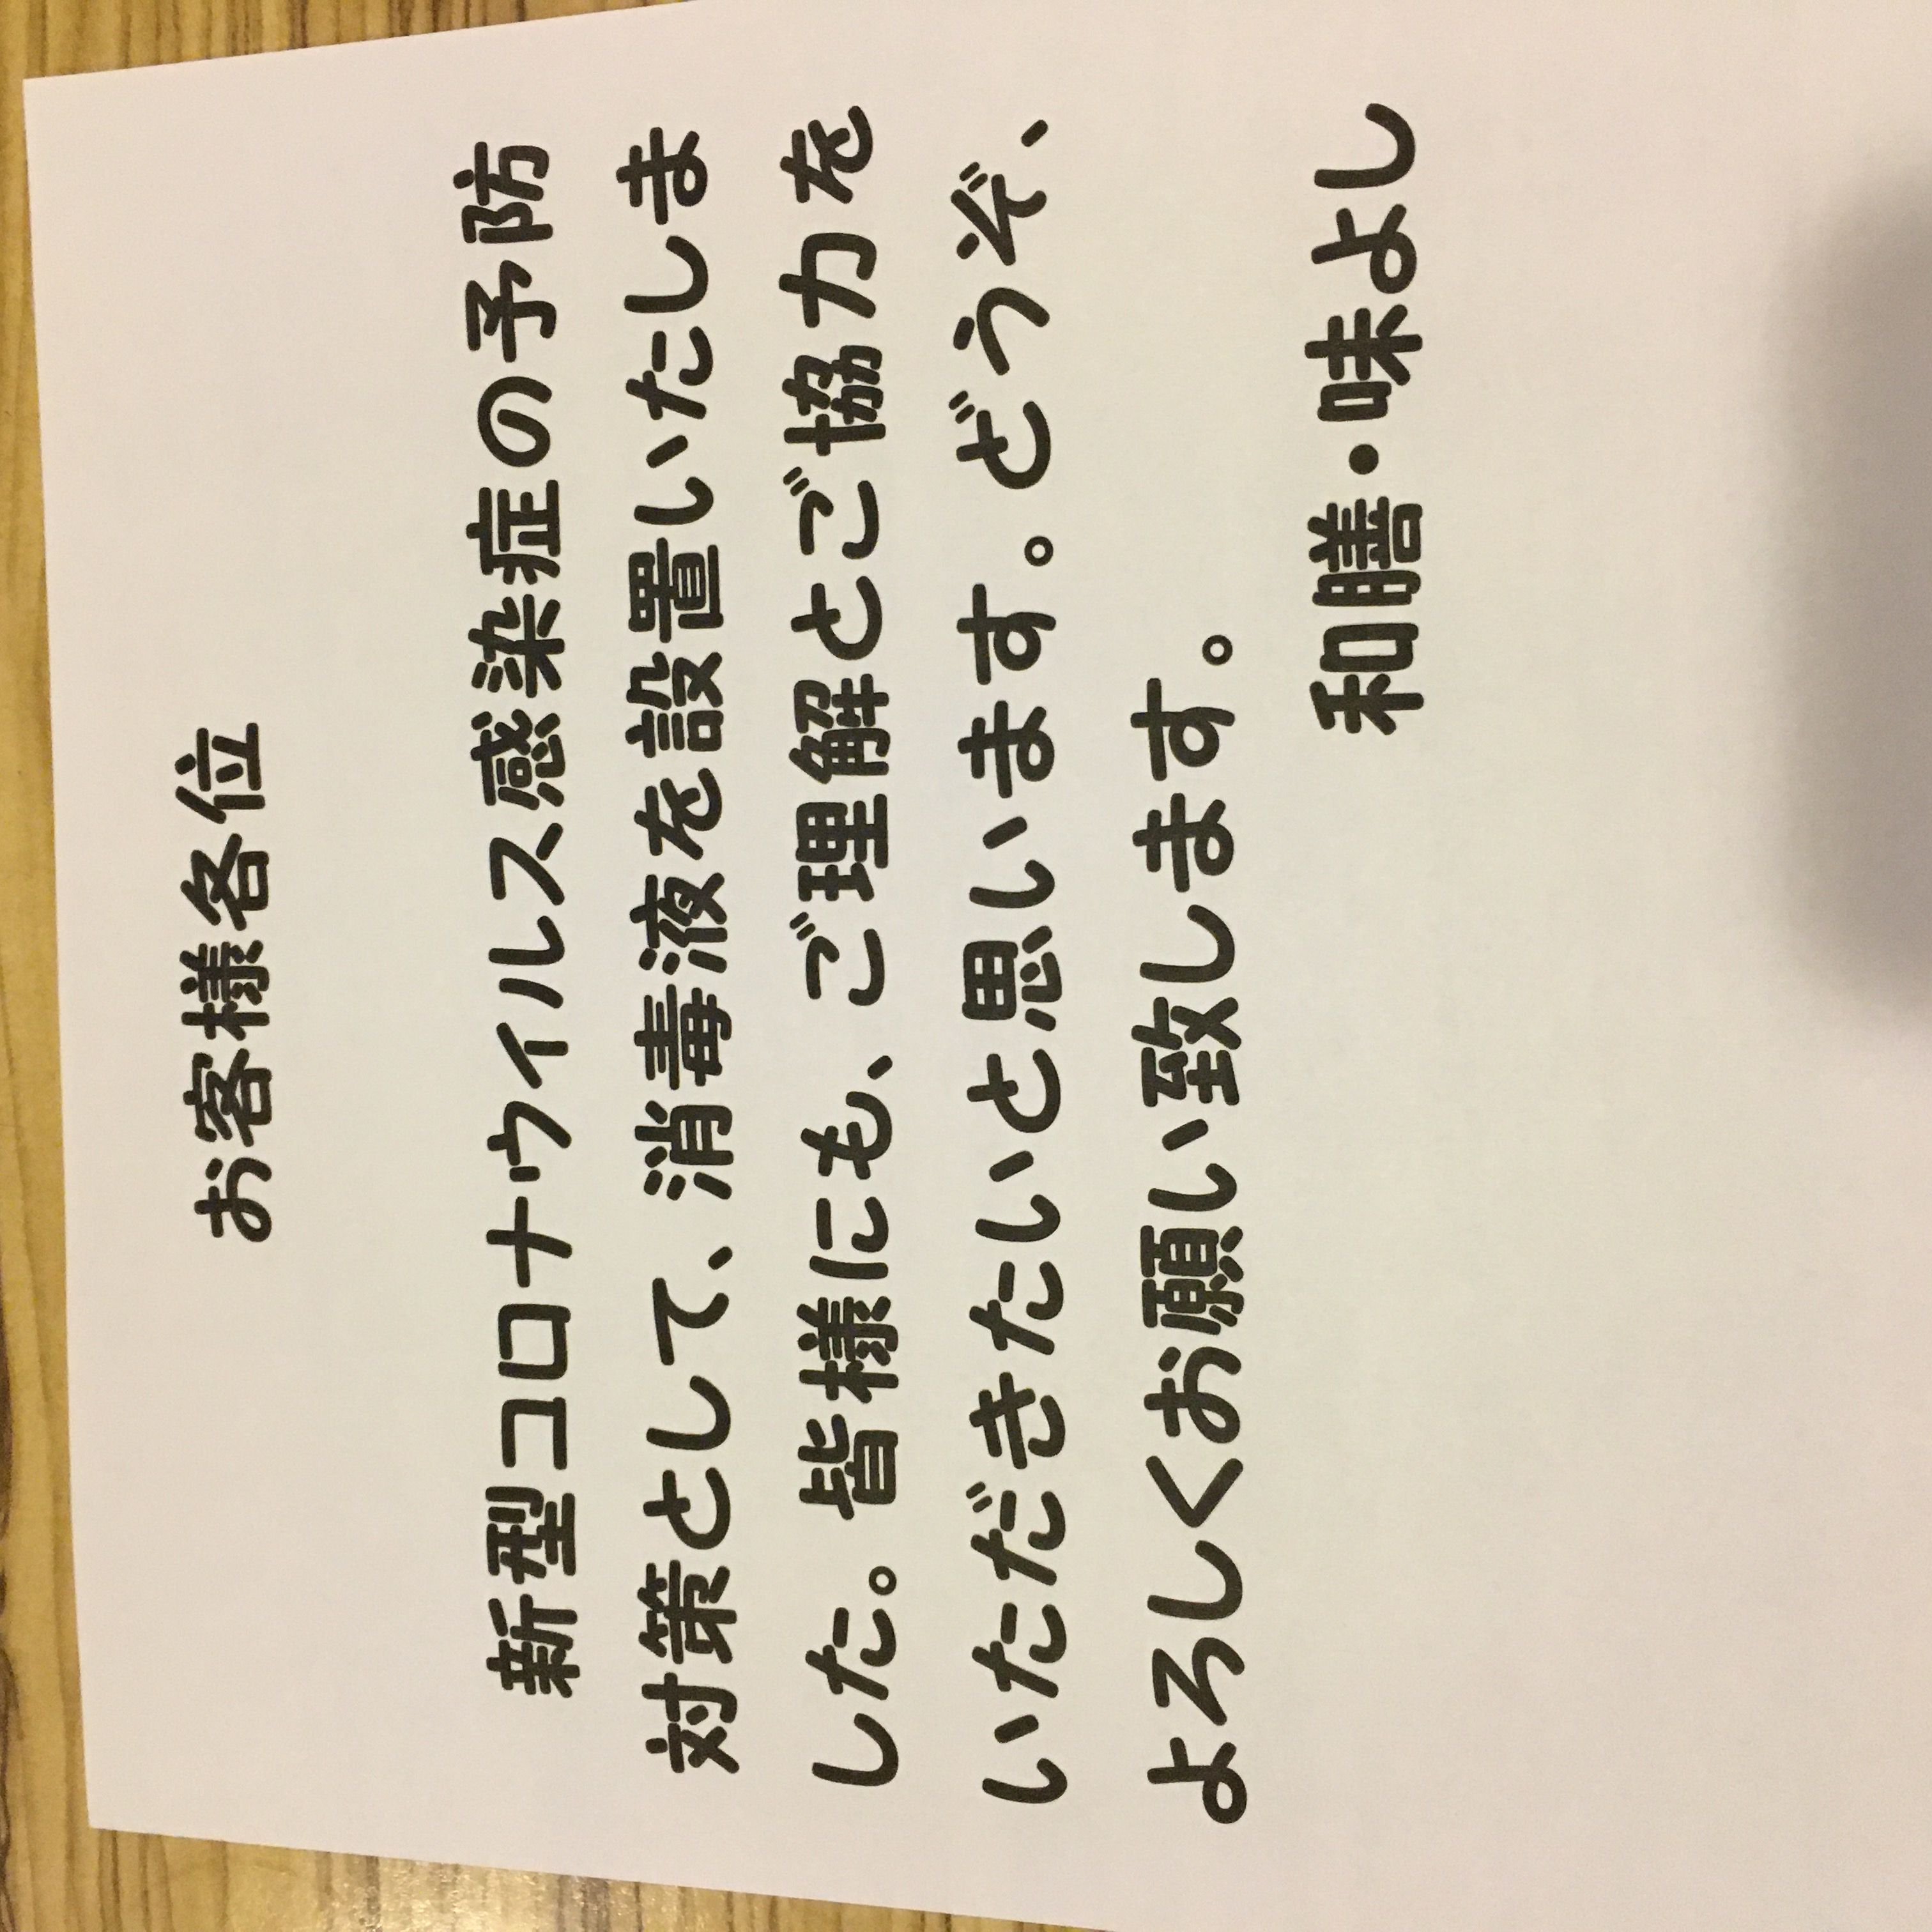 お客様各位
新型コロナウィルス感染症の予防
対策として、消毒液を設置いたしま
した。皆様にも、ご理解とご協力を
いただきたいと思います。どうぞ、
よろしくお願い致します。
和膳・味よし